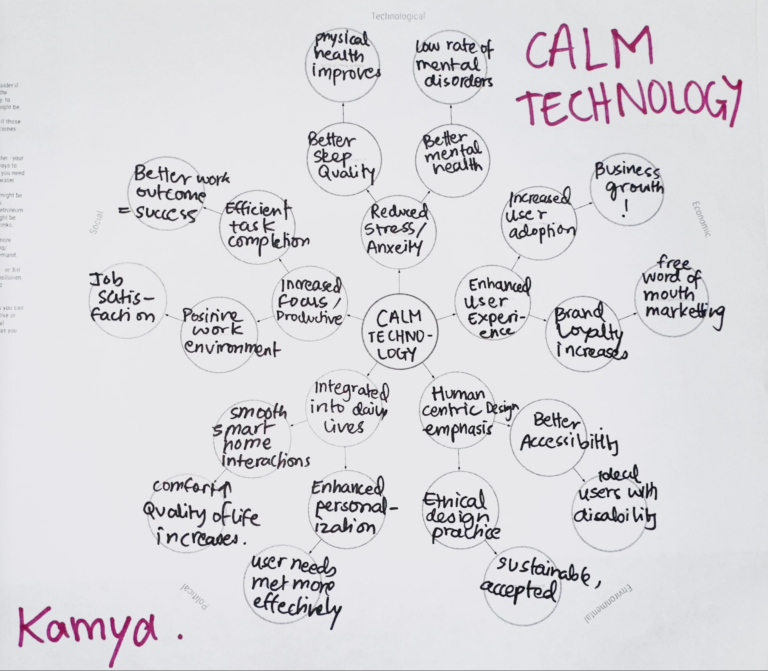 Technological
CALM
TECHNOLOGY
physical
health
improves
low rate of
mental
disorders
Better
sleep
Quality
Better
mental
health
Reduced
Stress/
Anxeity
Better work
outcome
= success
Efficient
task
completion
Increased
User
adoption
Business
growth
!
Social
Economic
Job
satis-
faction
Positive
work
environment
Increased
focus/
Productive
CALM
TECHNO-
LOGY
Enhanced
User
Experi-
ence
Brand
Loyalty
increases
free
word of
mouth
marketting
Integrated
into daily
Lives
Human
centric Design
emphasis
smooth
smart
home
interactions
Better
Accessibility
comfort↑
Quality of life
increases.
Enhanced
personal-
ization
Ethical
design
practice
ideal
users with
disability
user needs
met more
effectively
sustainable,
accepted
Political
Environmental
Kamya.